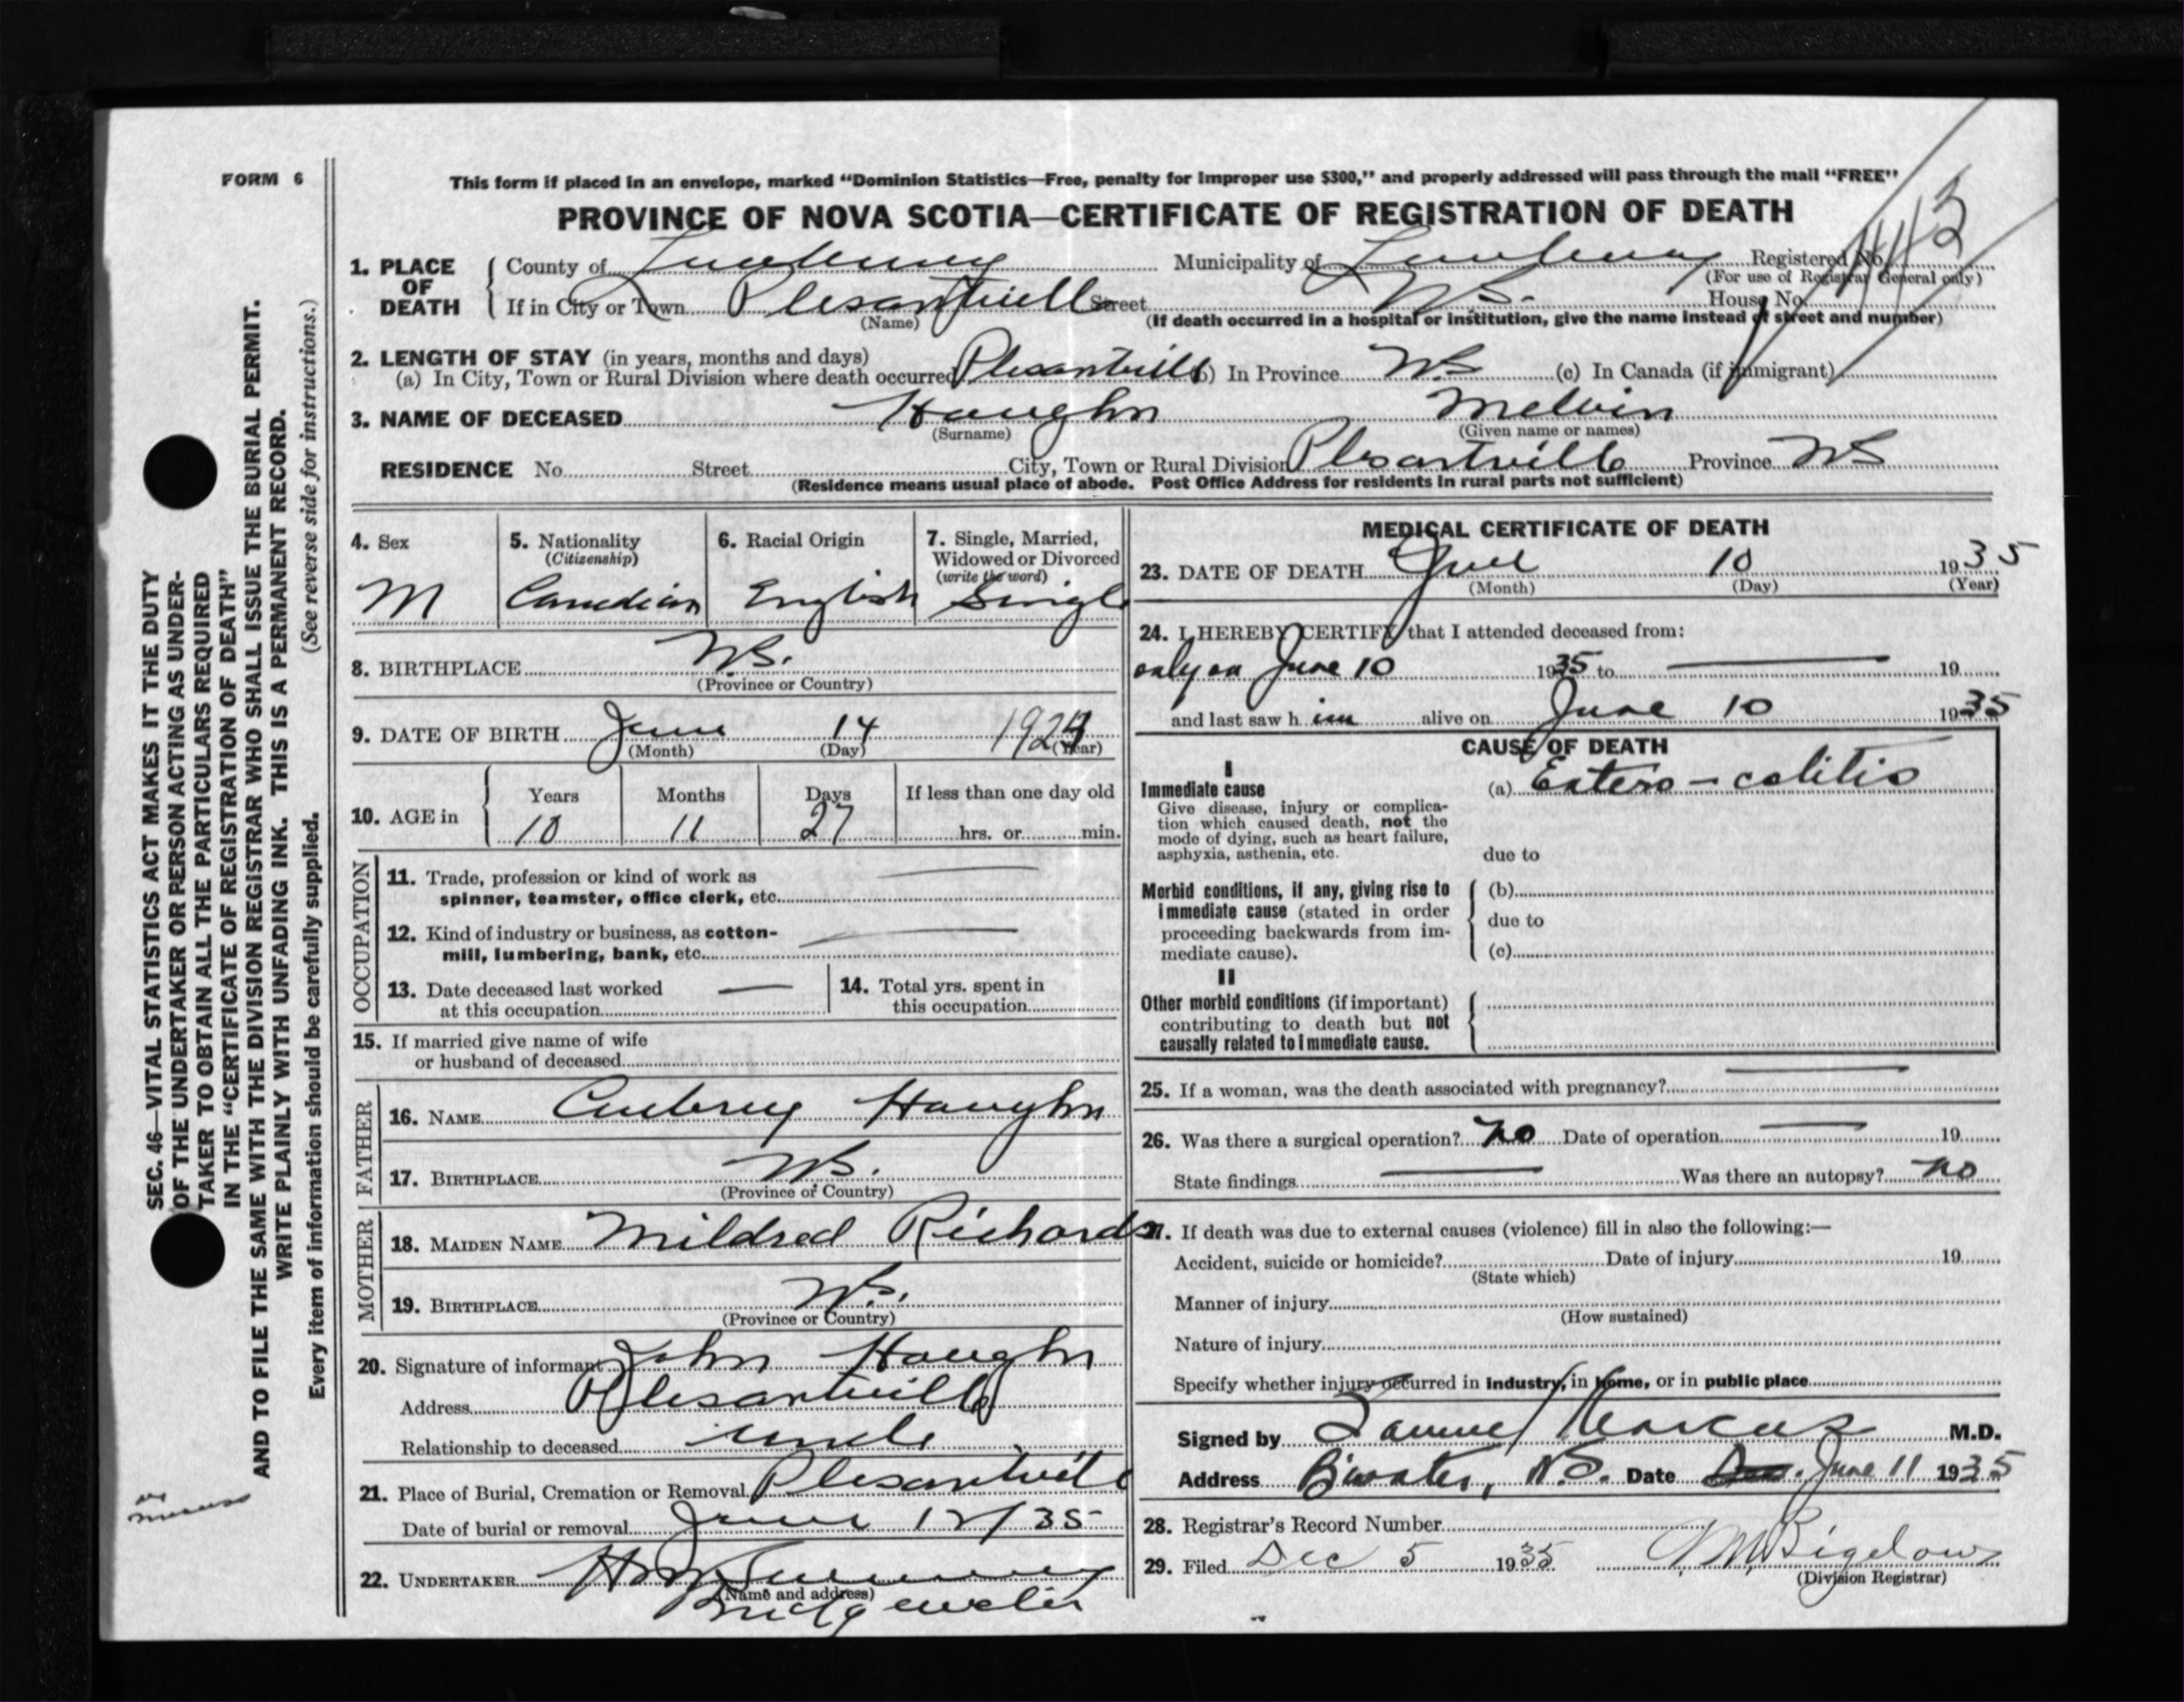 FORM 6
This form if placed in an envelope, marked "Dominion Statistics—Free, penalty for improper use $300," and properly addressed will pass through the mail "FREE"
PROVINCE OF NOVA SCOTIA—CERTIFICATE OF REGISTRATION OF DEATH
1. PLACE OF DEATH { County of Lunenburg Municipality of Lunenburg Registered No.
(For use of Registrar General only)
If in City or Town Plesantvill Street N.S. House No.
(Name) (If death occurred in a hospital or institution, give the name instead of street and number)
2. LENGTH OF STAY (in years, months and days)
(a) In City, Town or Rural Division where death occurred Plesantvill (b) In Province NS (c) In Canada (if immigrant)
3. NAME OF DECEASED Haughn Melvin
(Surname) (Given name or names)
RESIDENCE No. Street City, Town or Rural Division Plesantville Province NS
(Residence means usual place of abode. Post Office Address for residents in rural parts not sufficient)
4. Sex
M
5. Nationality
(Citizenship)
Canadian
6. Racial Origin
English
7. Single, Married,
Widowed or Divorced
(write the word)
Single
8. BIRTHPLACE N.S.
(Province or Country)
9. DATE OF BIRTH June 14 192
(Month) (Day) (Year)
10. AGE in { Years Months Days If less than one day old
10 11 27 hrs. or min.
OCCUPATION
11. Trade, profession or kind of work as
spinner, teamster, office clerk, etc. —
12. Kind of industry or business, as cotton-
mill, lumbering, bank, etc. —
13. Date deceased last worked
at this occupation —
14. Total yrs. spent in
this occupation
15. If married give name of wife
or husband of deceased
FATHER
16. NAME Aubrey Haughn
17. BIRTHPLACE N.S.
(Province or Country)
MOTHER
18. MAIDEN NAME Mildred Richards
19. BIRTHPLACE N.S.
(Province or Country)
20. Signature of informant John Haughn
Address Plesantville
Relationship to deceased uncle
21. Place of Burial, Cremation or Removal Plesantvill
Date of burial or removal June 12/35
22. UNDERTAKER
(Name and address)
Bridgewater
MEDICAL CERTIFICATE OF DEATH
23. DATE OF DEATH June 10 1935
(Month) (Day) (Year)
24. I HEREBY CERTIFY that I attended deceased from:
only on June 10 1935 to — 19
and last saw h im alive on June 10 1935
CAUSE OF DEATH
I
Immediate cause (a) Entero-colitis
Give disease, injury or complica-
tion which caused death, not the
mode of dying, such as heart failure,
asphyxia, asthenia, etc. due to
Morbid conditions, if any, giving rise to { (b)
immediate cause (stated in order due to
proceeding backwards from im-
mediate cause). (c)
II
Other morbid conditions (if important)
contributing to death but not
causally related to immediate cause.
25. If a woman, was the death associated with pregnancy? —
26. Was there a surgical operation? no Date of operation — 19
State findings — Was there an autopsy? no
27. If death was due to external causes (violence) fill in also the following:—
Accident, suicide or homicide? Date of injury 19
(State which)
Manner of injury
(How sustained)
Nature of injury
Specify whether injury occurred in industry, in home, or in public place
Signed by Samuel Marcus M.D.
Address B'water, N.S. Date June 11 1935
28. Registrar's Record Number
29. Filed Dec 5 1935 Bigelow
(Division Registrar)
SEC. 46—VITAL STATISTICS ACT MAKES IT THE DUTY
OF THE UNDERTAKER OR PERSON ACTING AS UNDER-
TAKER TO OBTAIN ALL THE PARTICULARS REQUIRED
IN THE "CERTIFICATE OF REGISTRATION OF DEATH"
AND TO FILE THE SAME WITH THE DIVISION REGISTRAR WHO SHALL ISSUE THE BURIAL PERMIT.
WRITE PLAINLY WITH UNFADING INK. THIS IS A PERMANENT RECORD.
Every item of information should be carefully supplied. (See reverse side for instructions.)